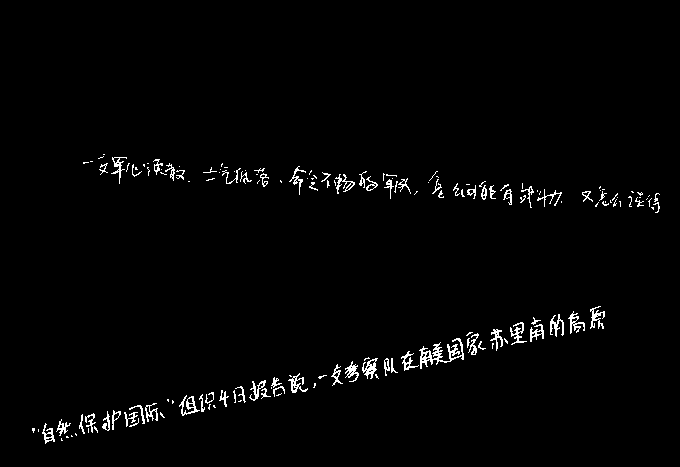 一支军心涣散、士气低落、命令不畅的军队,怎么可能有战斗力,又怎么谈得
“自然保护国际”组织4日报告说,一支考察队在南美国家苏里南的高原